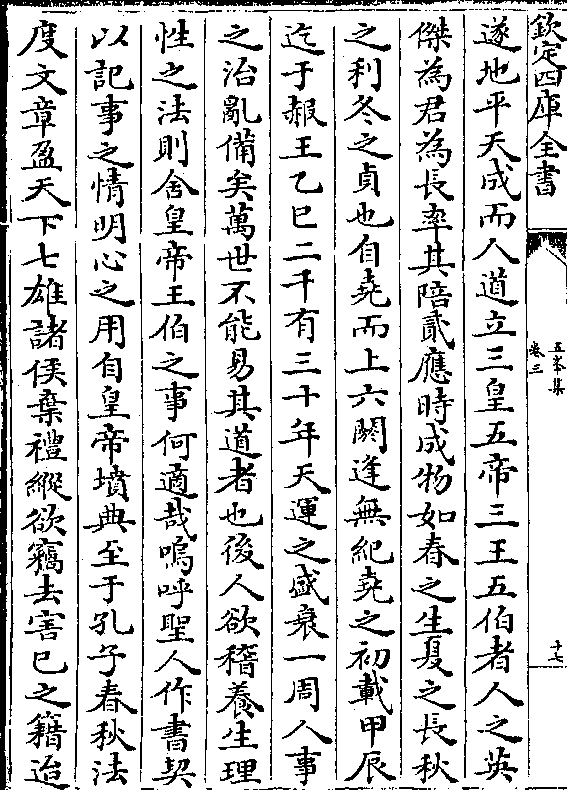 欽定四庫全書
五峯集
卷三
十七
遂地平天成而人道立三皇五帝三王五伯者人之英
傑為君為長率其陪貳應時成物如春之生夏之長秋
之利冬之貞也自堯而上六閼逢無紀堯之初載甲辰
迄于赧王乙巳二千有三十年天運之盛衰一周人事
之治亂備矣萬世不能易其道者也後人欲稽養生理
性之法則舍皇帝王伯之事何適哉嗚呼聖人作書契
以記事之情明心之用自皇帝墳典至于孔子春秋法
度文章盈天下七雄諸侯棄禮縱欲竊去害已之籍迨